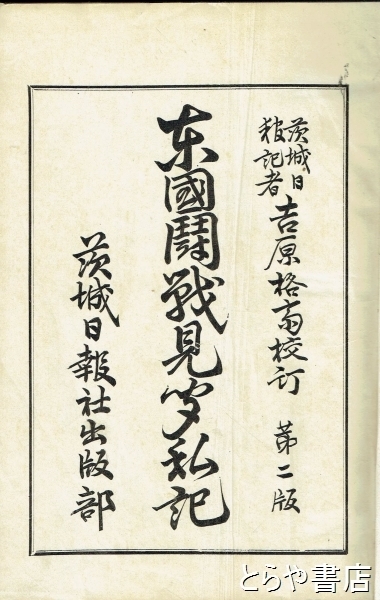 茨城日
報記者
吉原格斎校訂 第二版
东國闘戰見聞私記
茨城日報社出版部
とらや書店